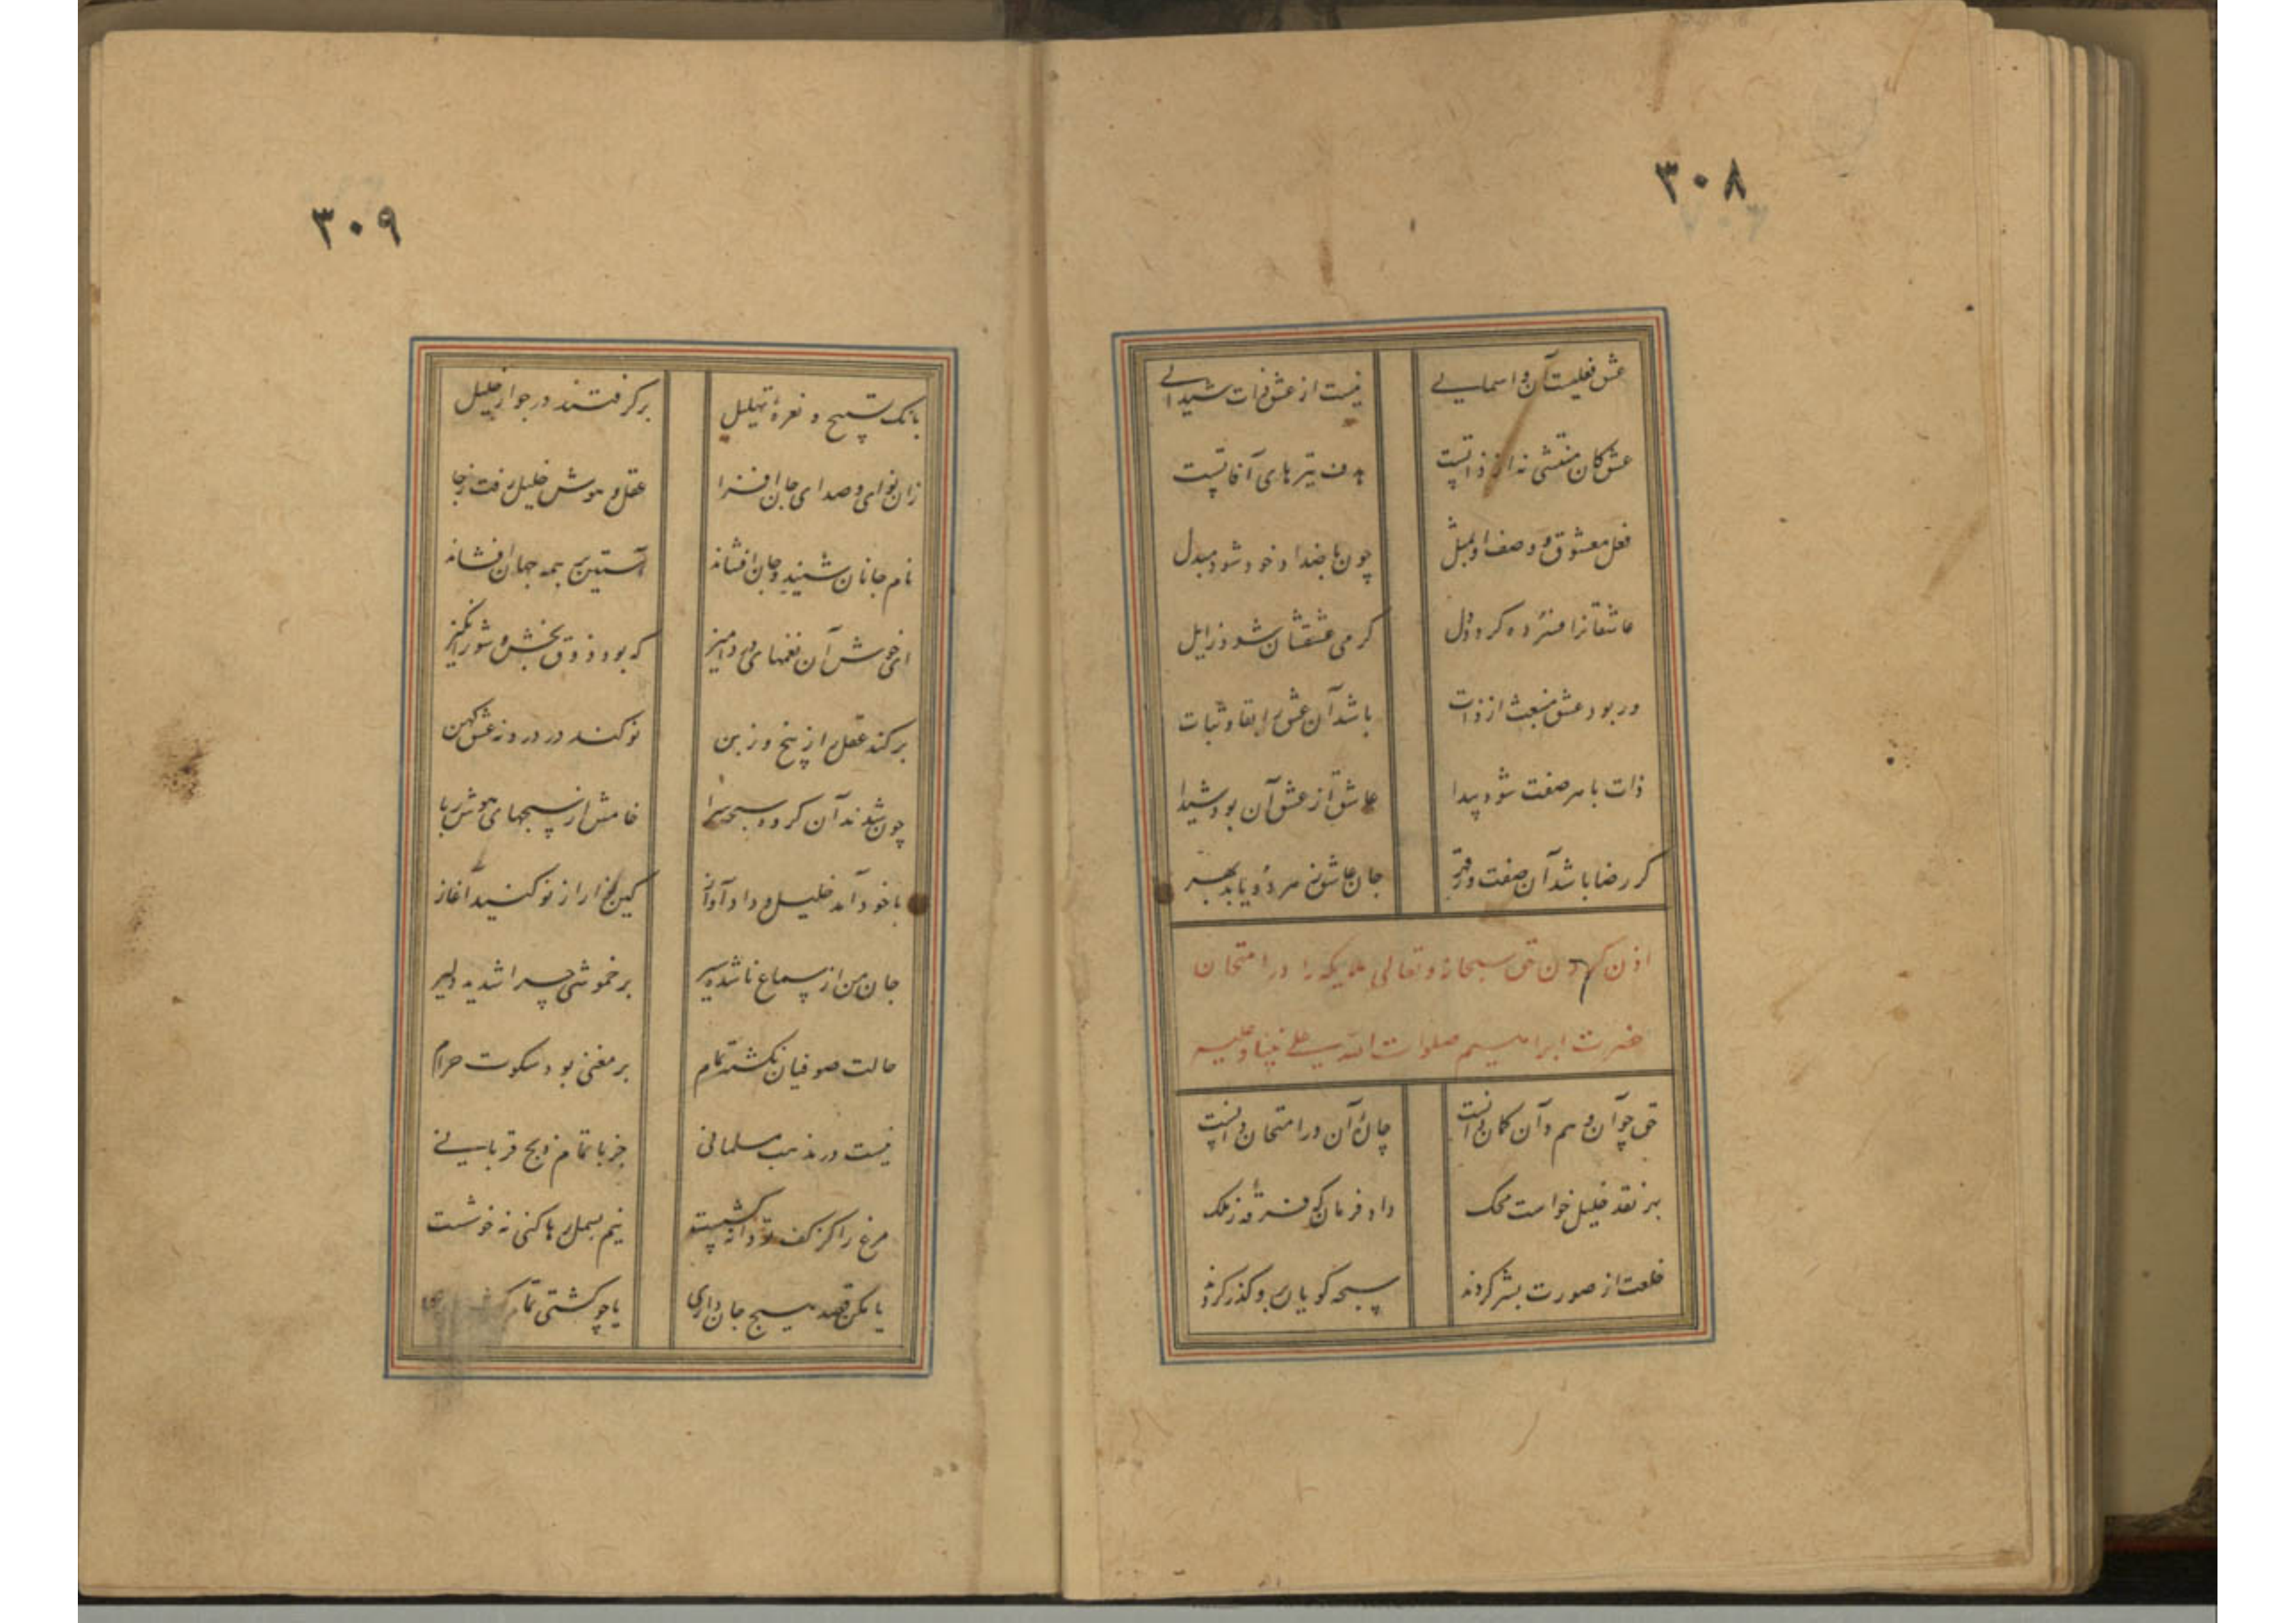 ۳۰۸
عشق فعلیست آن و اسمایی نیست از عشق ذات شیدایی
عشق کان منتشی نه از ذاتیست هدف تیرهای آفاتیست
فعل معشوق و وصف او بمثل چون باضداد خود شود مبدل
عاشقانرا فسرده کردد دل کرمی عشقشان شود زایل
ور بود عشق منبعث از ذات باشد آن عشق را بقا و ثبات
ذات با هر صفت شود پیدا عاشق از عشق آن بود شیدا
کر رضا باشد آن صفت ور قهر جان عاشق ز هر دو یابد بهر
اذن کردن حق سبحانه و تعالی ملایکه را در امتحان
حضرت ابراهیم صلوات الله علی نبینا و علیه
حق چو آن وهم و آن کمان دانست چارهٔ آن در امتحان دانست
بهر نقد خلیل خواست محک داد فرمان که فرقهٔ ز ملک
خلعت از صورت بشر کردند سبحه کویان برو کذر کردند
۳۰۹
بانک تسبیح و نعرهٔ تهلیل برکرفتند در جوار خلیل
زان نوای و صدای جان افزا عقل و هوش خلیل رفت ز جا
نام جانان شنید و جان افشاند آستین بر همه جهان افشاند
ای خوش آن نغمهای درد آمیز که بود ذوق بخش و شور انکیز
برکند عقل را ز بیخ و ز بن نو کند درد و روز عشق کهن
چون شدند آن کروه سبحه سرا خامش از سبحهای هوش ربا
با خود آمد خلیل و داد آواز کین نوا را ز نو کنید آغاز
جان من از سماع ناشده سیر بر خموشی چرا شدید دلیر
حالت صوفیان نکشته تمام بر مغنی بود سکوت حرام
نیست در مذهب مسلمانی جز باتمام ذبح قربانی
مرغ را کز کف تو دانه خوشست نیم بسمل رها کنی نه خوشست
یا مکن قصد هیچ جان داری یا چو کشتی تمام